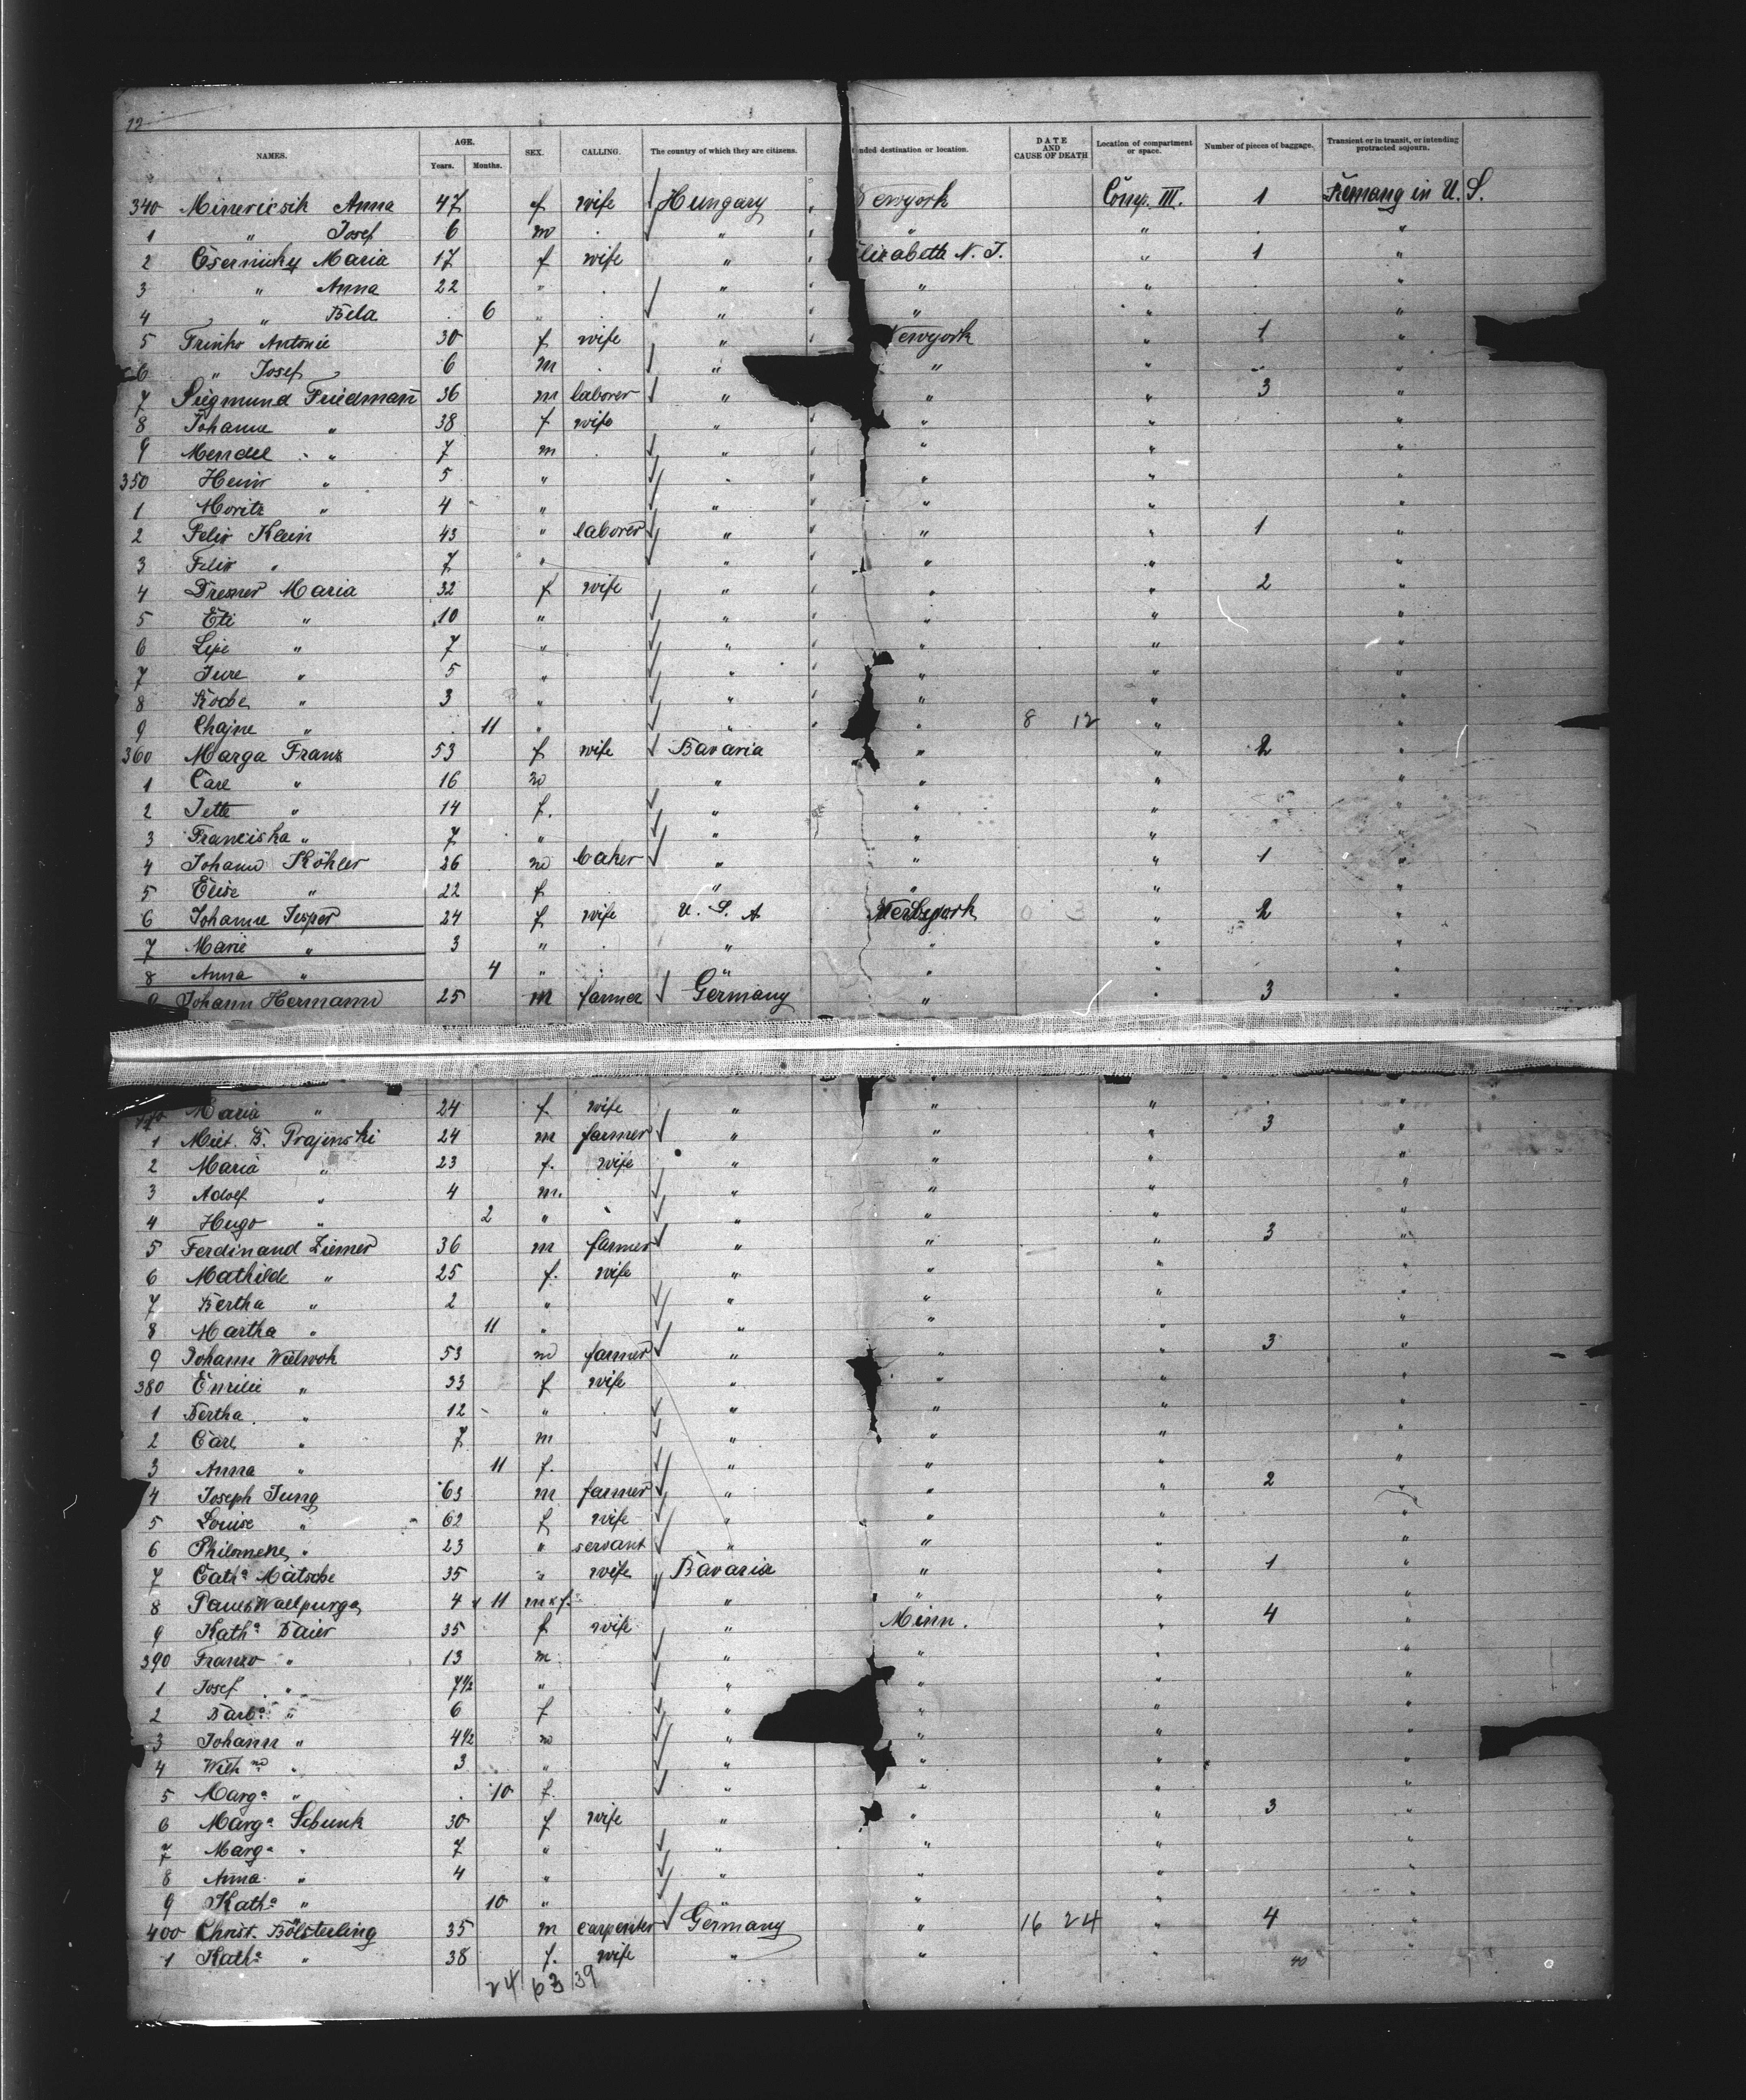 12
NAMES. AGE. Years. Months. SEX. CALLING. The country of which they are citizens. nded destination or location. DATE AND CAUSE OF DEATH Location of compartment or space. Number of pieces of baggage. Transient or in transit, or intending protracted sojourn.
340 Anna 47 f wife Hungary ewyork Comp. III. 1 in U. S.
1 " Josef 6 m . " " " . "
2 Maria 17 f wife " lizabeth N. J. " 1 "
3 " Anna 22 " . " " " . "
4 " Bela . 6 " . " " " . "
5 Antonie 30 f wife " Newyork " 1 "
6 " Josef 6 m . " " " "
7 Siegmund Friedman 36 m laborer " " " 3 "
8 Johanne " 38 f wife " " " "
9 Mendel " 7 m . " " " "
350 Heinr " 5 " " " " "
1 Moritz " 4 " " " " "
2 Felix Klein 43 " laborer " " " 1 "
3 Felix " 7 " " " " "
4 Maria 32 f wife " " " 2 "
5 Eti " 10 " " " " "
6 " 7 " " " " "
7 " 5 " " " " "
8 " 3 " " " " "
9 Chajne " . 11 " " " 8 12 " "
360 Marga Franz 53 f wife Bavaria " " 2 "
1 Carl " 16 m " " " "
2 Jette " 14 f. " " " "
3 Franciska " 7 " " " " "
4 Johann Köhler 26 m baker " " " 1 "
5 Elise " 22 f " " " "
6 Johanne Jesper 24 f wife U. S. A " 2 "
7 Marie " 3 " . " " " "
8 Anna " 4 " " " " "
9 Johann Hermann 25 m farmer Germany " " 3 "
370 Maria " 24 f wife " " " "
1 Prajinski 24 m farmer " " " 3 "
2 Maria " 23 f. wife " " " "
3 Adolf " 4 m. " " " "
4 Hugo " 2 " " " " "
5 Ferdinand Ziemer 36 m farmer " " " 3 "
6 Mathilde " 25 f. wife " " " "
7 Bertha " 2 " " " " "
8 Martha " 11 " " " " "
9 Johann 53 m farmer " " " 3 "
380 Emilie " 33 f wife " " " "
1 Bertha " 12 " " " " "
2 Carl " 7 m " " " "
3 Anna " 11 f. " " " "
4 Joseph Jung 63 m farmer " " " 2 "
5 Louise " 62 f wife " " " "
6 Philomene " 23 " servant " " " "
7 Cath.a Mätsche 35 " wife Bavaria " " 1 "
8 Wallpurga 4 11 m & f. " " " "
9 Kath.a Baier 35 f wife " Minn. " 4 "
390 " 13 m. " " " "
1 Josef " 7½ " " " " "
2 Barb.a " 6 f " " " "
3 Johann " 4½ m " " " "
4 " 3 " " " " "
5 Marg.a " . 10 f. " " " "
6 Marg.a 30 f wife " " " 3 "
7 Marg.a " 7 " " " " "
8 Anna " 4 " " " " "
9 Kath.a " 10 " " " " "
400 Christ. Bölsterling 35 m carpenter Germany " 16 24 " 4 "
1 Kath.a " 38 f. wife " " " "
24 63 39